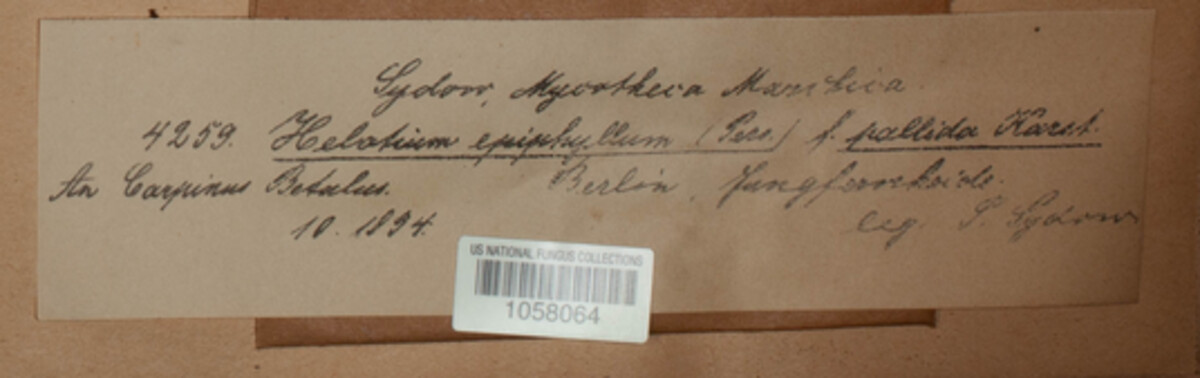 Sydow, Mycotheca Marchica.
4259. Helotium epiphyllum (Pers.) f. pallida Karst.
An Carpinus Betulus. Berlin, Jungfernheide.
10. 1894. leg. P. Sydow
US NATIONAL FUNGUS COLLECTIONS
1058064